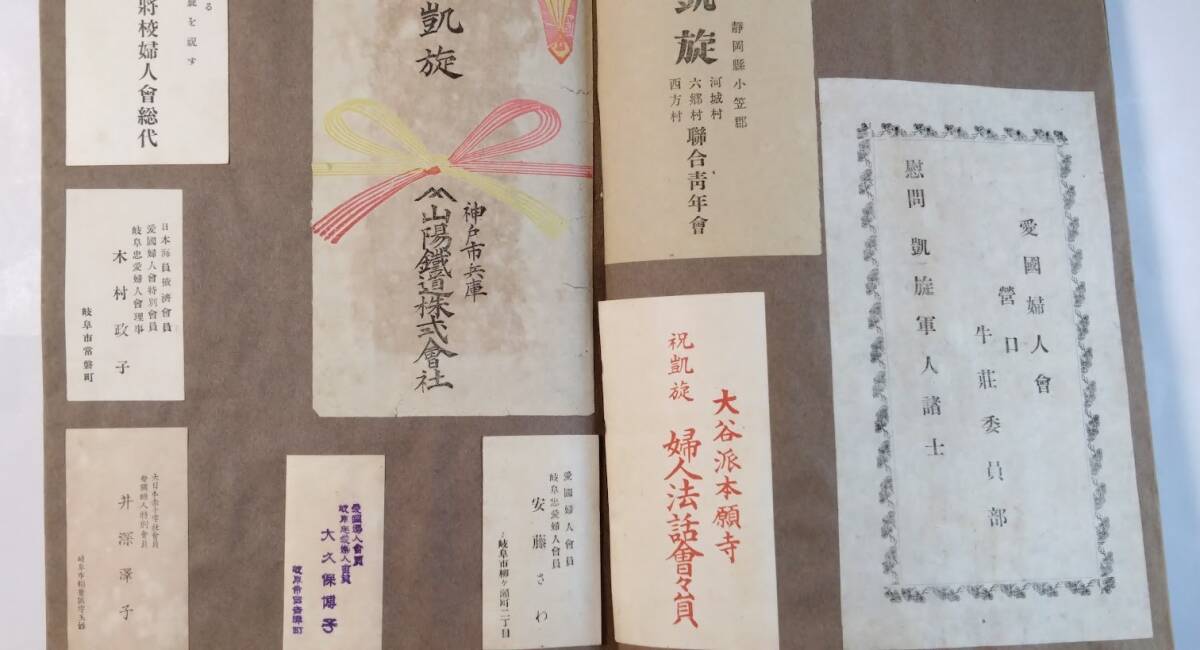 る
旋を祝す
將校婦人會総代
日本海員掖濟會員
愛國婦人會特別會員
岐阜忠愛婦人會理事
木村政子
岐阜市常磐町
大日本赤十字社會員
愛國婦人特別會員
井深澤子
凱旋
神戸市兵庫
山陽鐵道株式會社
愛國婦人會員
岐阜忠愛婦人會員
大久保博子
愛國婦人會員
岐阜忠愛婦人會員
安藤さわ
岐阜市柳ヶ瀬町二丁目
靜岡縣小笠郡
河城村
六郷村
西方村
聯合青年會
凱旋
大谷派本願寺
婦人法話會々員
祝凱旋
愛國婦人會
營口
牛莊委員部
慰問凱旋軍人諸士